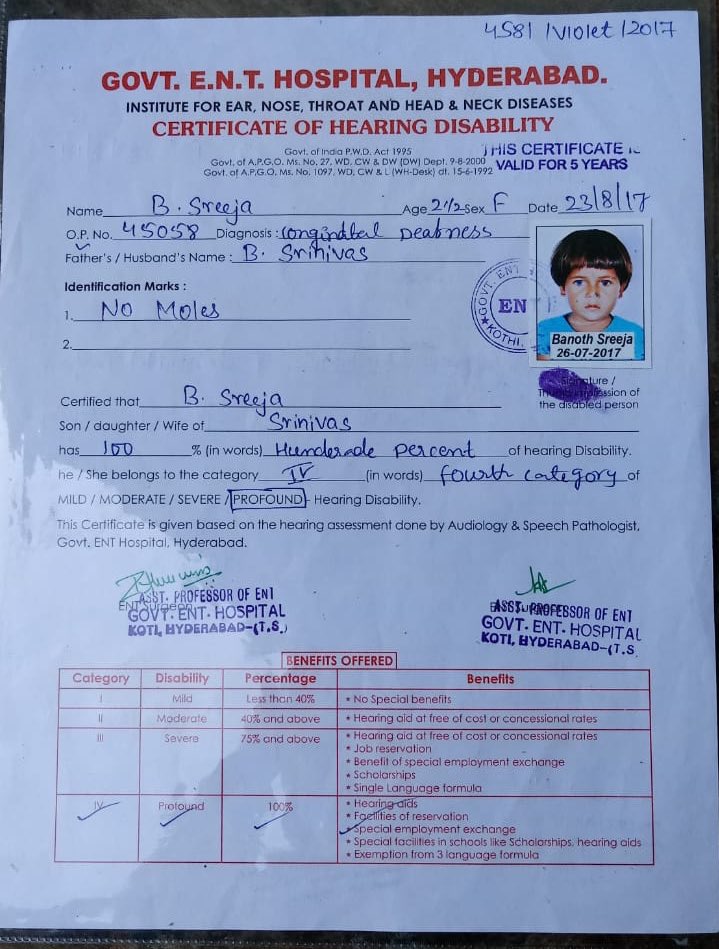 4581/Violet/2017
GOVT. E.N.T. HOSPITAL, HYDERABAD.
INSTITUTE FOR EAR, NOSE, THROAT AND HEAD & NECK DISEASES
CERTIFICATE OF HEARING DISABILITY
Govt. of India P.W.D. Act 1995
Govt. of A.P.G.O. Ms. No. 27, WD, CW & DW (DW) Dept. 9-8-2000
Govt. of A.P.G.O. Ms. No. 1097, WD, CW & L (WH-Desk) dt. 15-6-1992
THIS CERTIFICATE IS
VALID FOR 5 YEARS
Name B. Sreeja Age 2 1/2 Sex F Date 23/8/17
O.P. No. 45058 Diagnosis : Conginabtal Deabness
Father's / Husband's Name : B. Srinivas
Identification Marks :
1. No Moles
2.
GOVT. ENT
ENT
KOTHI.
Banoth Sreeja
26-07-2017
Signature /
Thumb Impression of
the disabled person
Certified that B. Sreeja
Son / daughter / Wife of Srinivas
has 100 % (in words) Hunderade percent of hearing Disability.
he / She belongs to the category IV (in words) fourth category of
MILD / MODERATE / SEVERE / PROFOUND - Hearing Disability.
This Certificate is given based on the hearing assessment done by Audiology & Speech Pathologist,
Govt. ENT Hospital, Hyderabad.
ENT Surgeon
ASST. PROFESSOR OF ENT
GOVT. ENT. HOSPITAL
KOTI, HYDERABAD-(T.S.)
ASST. PROFESSOR OF ENT
GOVT. ENT. HOSPITAL
KOTI, HYDERABAD-(T.S.
BENEFITS OFFERED
Category Disability Percentage Benefits
I Mild Less than 40% * No Special benefits
II Moderate 40% and above * Hearing aid at free of cost or concessional rates
III Severe 75% and above * Hearing aid at free of cost or concessional rates
* Job reservation
* Benefit of special employment exchange
* Scholarships
* Single Language formula
IV Profound 100% * Hearing aids
* Facilities of reservation
* Special employment exchange
* Special facilities in schools like Scholarships, hearing aids
* Exemption from 3 language formula